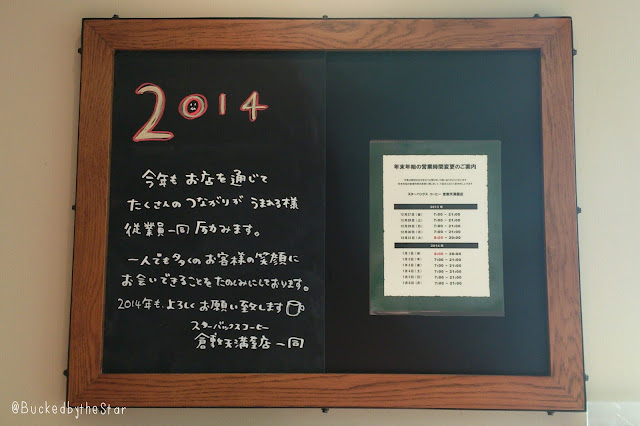 2014
今年も お店を通じて
たくさんの つながりが うまれる様
従業員一同 励みます。
一人でも多くのお客様の笑顔に
お会いできることをたのしみにしております。
2014年も、よろしくお願い致します
スターバックスコーヒー
倉敷天満屋店 一同
年末年始の営業時間変更のご案内
スターバックス コーヒー 倉敷天満屋店
2013年
12月27日(金) 7:00 - 21:00
12月28日(土) 7:00 - 21:00
12月29日(日) 7:00 - 21:00
12月30日(月) 7:00 - 21:00
12月31日(火) 8:00 - 20:00
2014年
1月1日(水)
1月2日(木) 7:00 - 21:00
1月3日(金) 7:00 - 21:00
1月4日(土) 7:00 - 21:00
1月5日(日) 7:00 - 21:00
1月6日(月) 7:00 - 21:00
@BuckedbytheStar